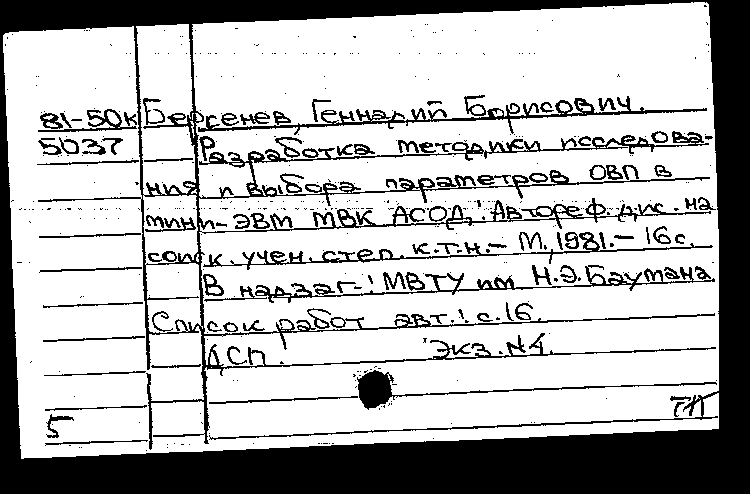 81-50к Бергенев, Геннадий Борисович.
5037 Разработка методики исследова-
ния и выбора параметров ОВП в
мини-ЭВМ МВК АСОД,: Автореф. дис. на
соиск. учен. степ. к.т.н.- М., 1981.- 16 с.
В надзаг.: МВТУ им Н.Э.Баумана.
Список работ авт.: с.16.
ДСП. Экз. №4.
5